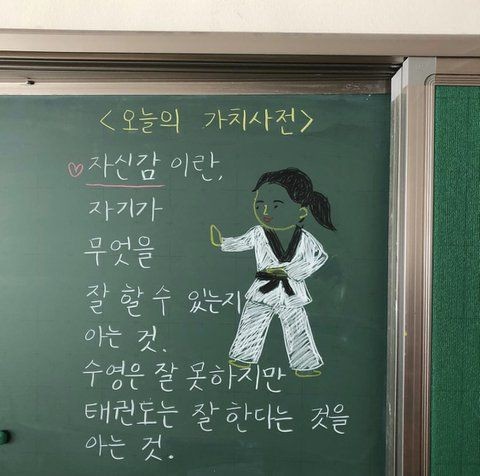 <오늘의 가치사전>
♡자신감이란,
자기가
무엇을
잘 할 수 있는지
아는 것.
수영은 잘 못하지만
태권도는 잘 한다는 것을
아는 것.